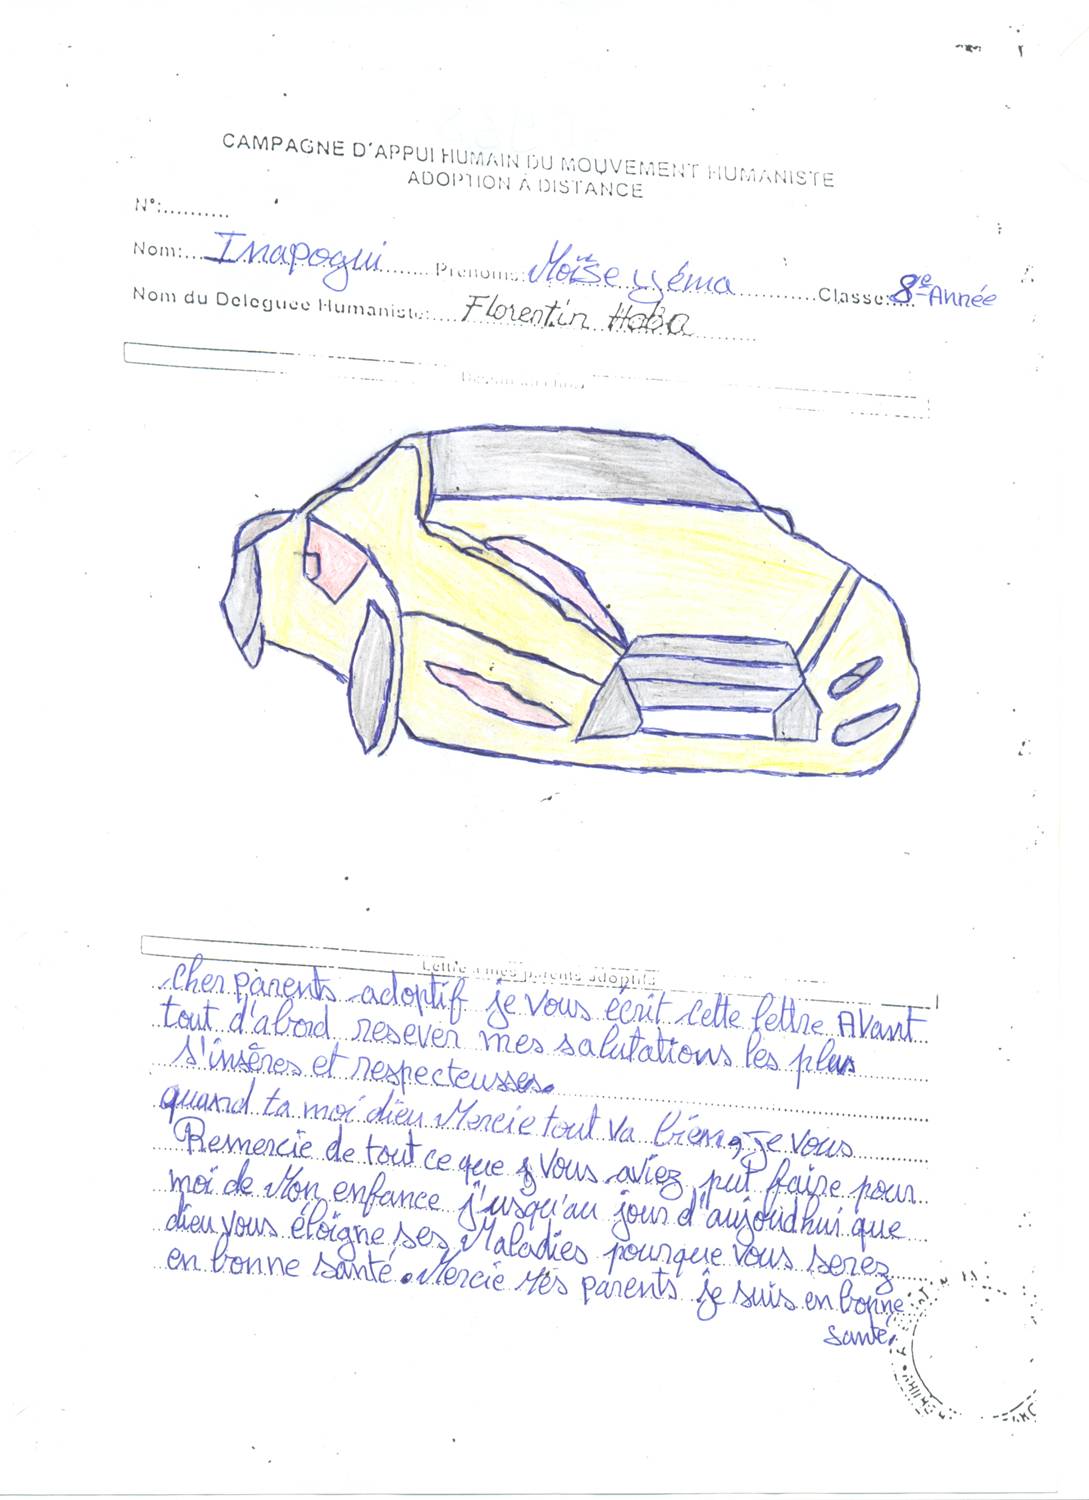 CAMPAGNE D'APPUI HUMAIN DU MOUVEMENT HUMANISTE
ADOPTION A DISTANCE
N°:..........
Nom:... Inapogui ...... Prenoms: Moïse yéma ..........Classe:... 8e Année
Nom du Deleguee Humaniste:... Florentin Haba ........
Dessin
Lettre à mes parents adoptifs
cher parents adoptif je vous écrit cette lettre Avant
tout d'abord resever mes salutations les plus
s'insères et respecteusses.
quand ta moi dieu Mercie tout va bien, je vous
Remercie de tout ce que vous aviez put faire pour
moi de Mon enfance j'usqu'au jour d'aujourdhui que
dieu vous éloigne ses Maladies pourque vous serez
en bonne santé. Mercie Mes parents je suis en bonne
santé.